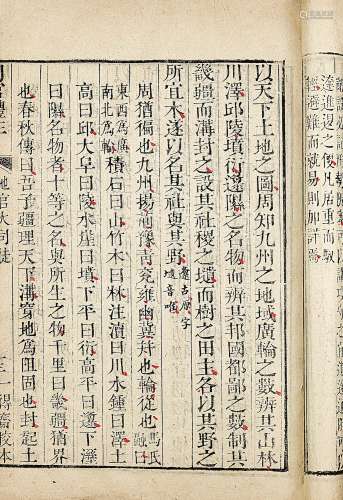 以天下土地之圖周知九州之地域廣輪之數辨其山林
川澤邱陵墳衍邍隰之名物而辨其邦國都鄙之數制其
畿疆而溝封之設其社稷之壝而樹之田主各以其野之
所宜木遂以名其社與其野 邍古原字 壝音唯
周猶徧也九州揚荊豫青兗雍幽冀并也輪從也 馬氏融曰
東西爲廣南北爲輪 積石曰山竹木曰林注瀆曰川水鍾曰澤土
高曰邱大阜曰陵水崖曰墳下平曰衍高平曰邍下溼
曰隰名物者十等之名與所生之物千里曰畿疆猶界
也春秋傳曰吾子疆理天下溝穿地爲阻固也封起土
官禮三 地官大司徒 一得齋校本